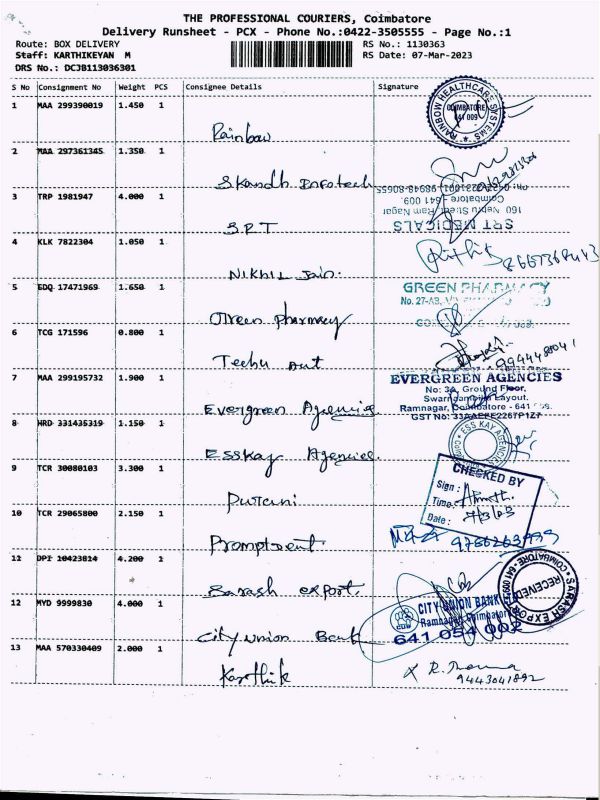 THE PROFESSIONAL COURIERS, Coimbatore
Delivery Runsheet - PCX - Phone No.:0422-3505555 - Page No.:1
Route: BOX DELIVERY RS No.: 1130363
Staff: KARTHIKEYAN M RS Date: 07-Mar-2023
DRS No.: DCJB113036301
S No Consignment No Weight PCS Consignee Details Signature
1 MAA 299390019 1.450 1
RAINBOW HEALTHCARE SYSTEMS
COIMBATORE
641 009
Rainbow
2 MAA 297361345 1.350 1
Skandh Infotech
3 TRP 1981947 4.000 1
Coimbatore - 641 009.
160 Nehru Street, Ram Nagar
SRT MEDICALS
SRT
4 KLK 7822304 1.050 1
Nikhil Jain.
5 EDQ 17471969 1.650 1
GREEN PHARMACY
No. 27-AB,
Green pharmacy
6 TCG 171596 0.800 1
Techu
7 MAA 299195732 1.900 1
EVERGREEN AGENCIES
No: 3A, Ground Floor,
Layout.
Ramnagar, Coimbatore - 641
GST No:
Evergreen Agencies
8 HRD 331435319 1.150 1
ESS KAY AGENCIES
Esskay Agencies.
9 TCR 30080103 3.300 1
CHECKED BY
Sign :
Time:
Date : 7/3/23
10 TCR 29065800 2.150 1
11 DPI 10423814 4.200 1
COIMBATORE - 641 009
RECEIVED
SARASH EXPORT
Sarash export.
12 MYD 9999830 4.000 1
CITY UNION BANK
Ramnagar Coimbatore
641 054 002
City union Bank
13 MAA 570330409 2.000 1
Karthik
9443041892